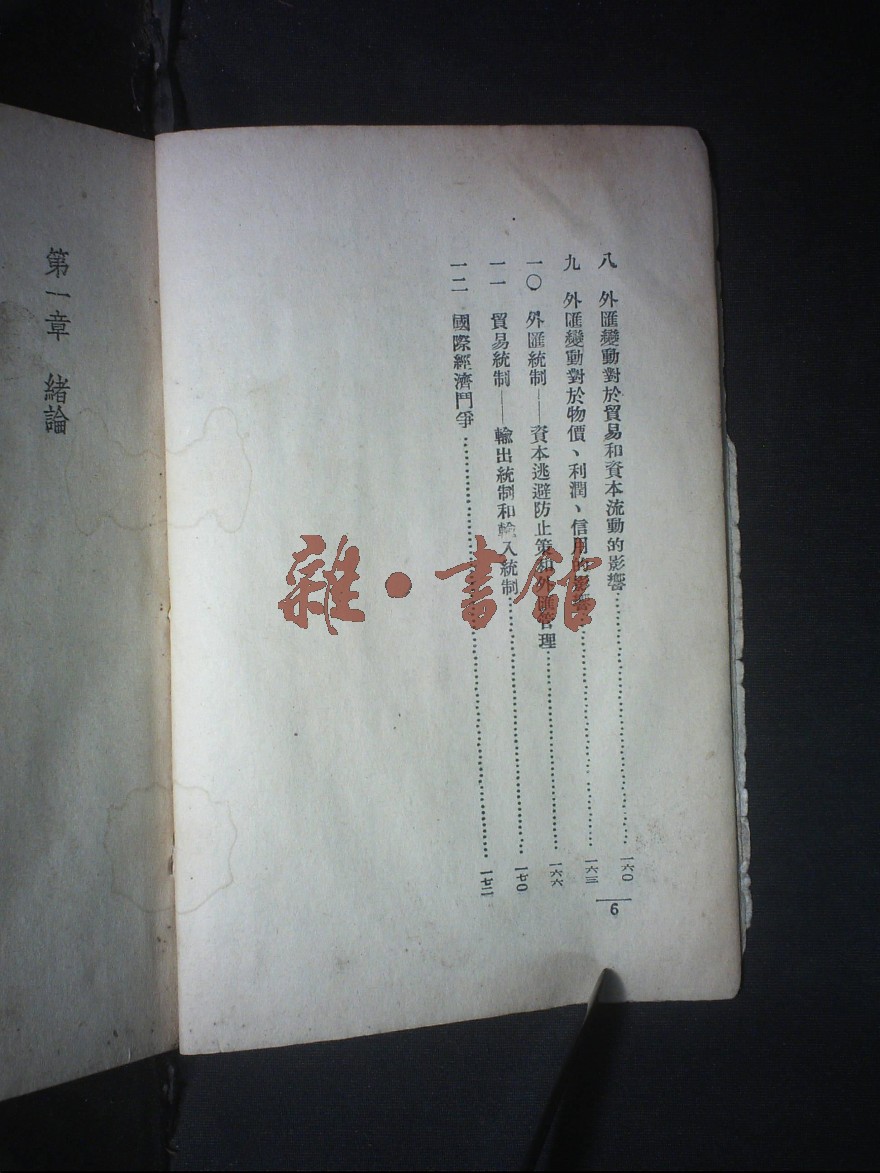 八　外匯變動對於貿易和資本流動的影響…………一六〇
九　外匯變動對於物價、利潤、信用的影響…………一六三
一〇　外匯統制——資本逃避防止策和外匯管理…………一六六
一一　貿易統制——輸出統制和輸入統制…………一七〇
一二　國際經濟鬥爭…………一七二
6
第一章　緒論
雜·書館